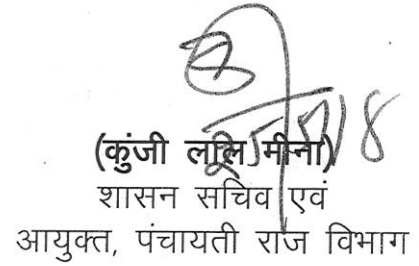 (कुंजी लाल मीना)
शासन सचिव एवं
आयुक्त, पंचायती राज विभाग